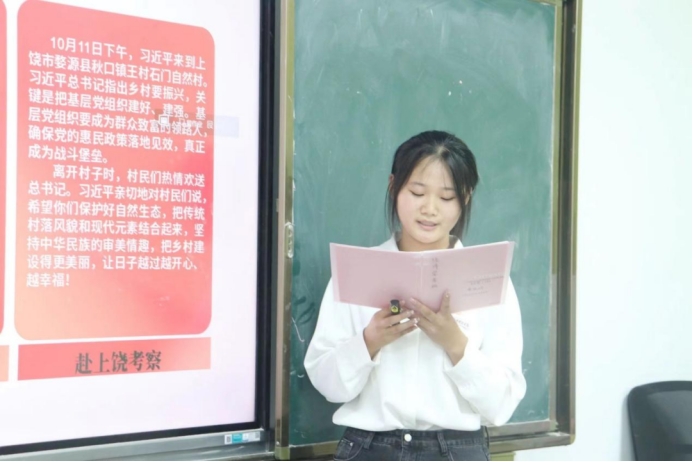 10月11日下午，习近平来到上
饶市婺源县秋口镇王村石门自然村。
习近平总书记指出乡村要振兴，关
键是把基层党组织建好、建强。基
层党组织要成为群众致富的领路人，
确保党的惠民政策落地见效，真正
成为战斗堡垒。
离开村子时，村民们热情欢送
总书记。习近平亲切地对村民们说，
希望你们保护好自然生态，把传统
村落风貌和现代元素结合起来，坚
持中华民族的审美情趣，把乡村建
设得更美丽，让日子越过越开心、
越幸福！
赴上饶考察